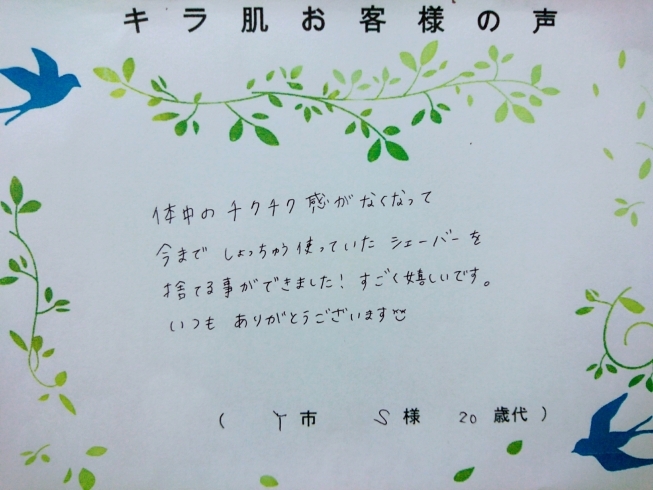 キラ肌お客様の声
体中のチクチク感がなくなって
今まで しょっちゅう使っていた シェーバーを
捨てる事ができました！すごく嬉しいです。
いつも ありがとうございます
( Y市 S様 20歳代 )